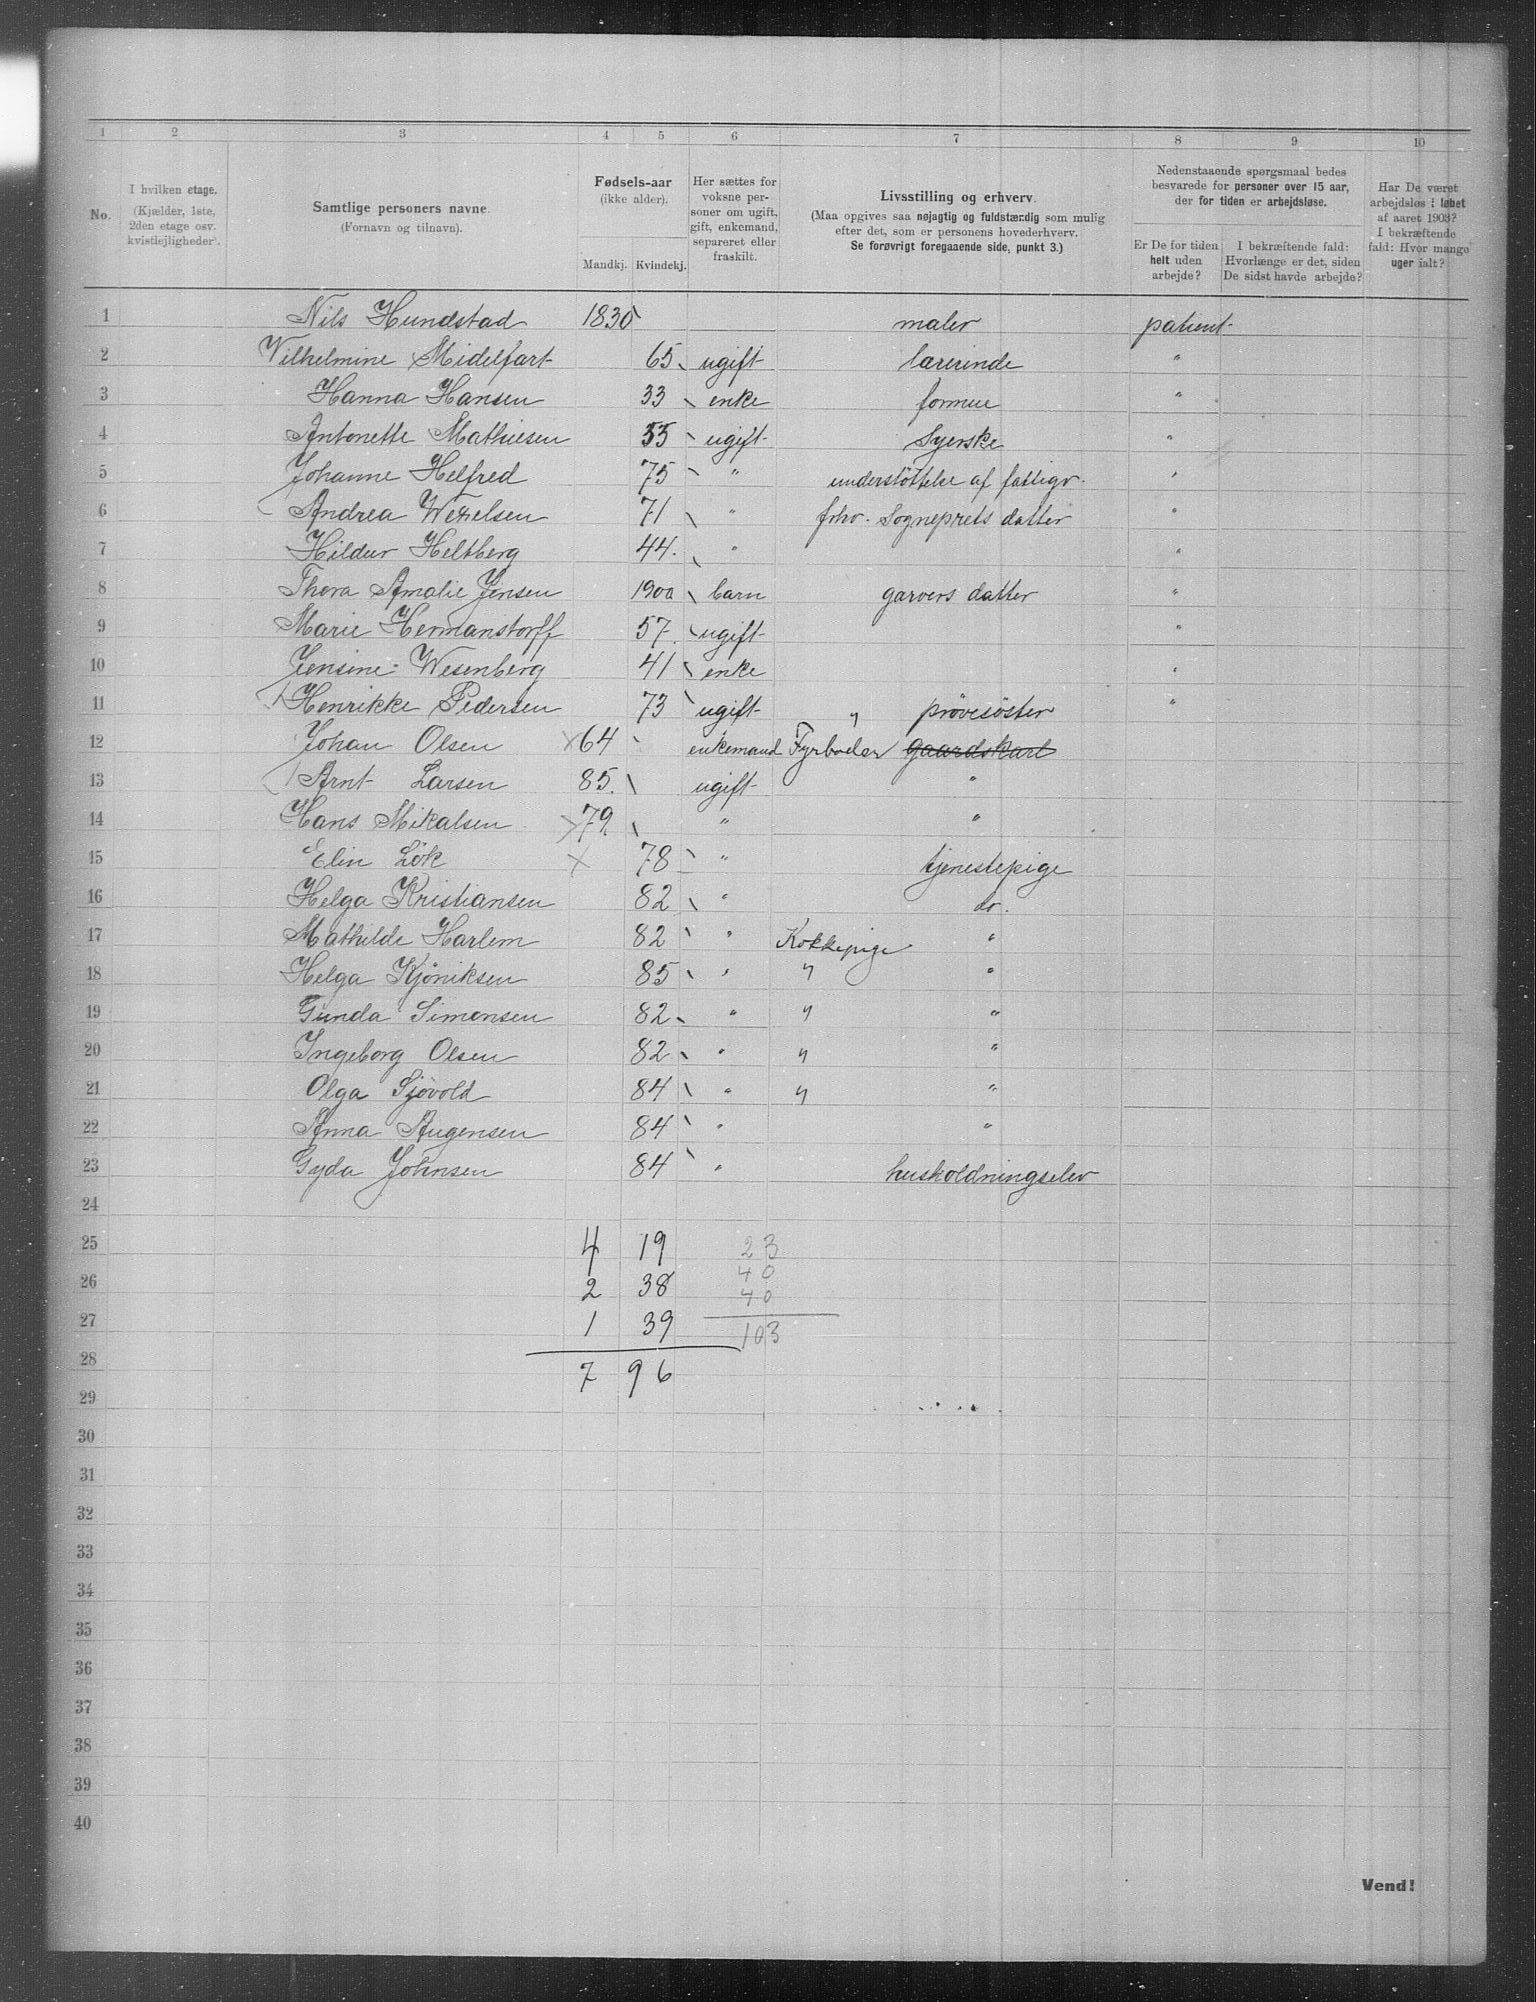 1 2 3 4 5 6 7 8 9 10
No.
I hvilken etage.
(Kjælder, 1ste,
2den etage osv.
kvistlejligheder).
Samtlige personers navne.
(Fornavn og tilnavn).
Fødsels-aar
(ikke alder).
Mandkj. Kvindekj.
Her sættes for
voksne per-
soner om ugift,
gift, enkemand,
separeret eller
fraskilt.
Livsstilling og erhverv.
(Maa opgives saa nøjagtig og fuldstændig som mulig
efter det, som er personens hovederhverv.
Se forøvrigt foregaaende side, punkt 3.)
Nedenstaaende spørgsmaal bedes
besvarede for personer over 15 aar,
der for tiden er arbejdsløse.
Er De for tiden
helt uden
arbejde?
I bekræftende fald:
Hvorlænge er det, siden
De sidst havde arbejde?
Har De været
arbejdsløs i løbet
af aaret 1903?
I bekræftende
fald: Hvor mange
uger ialt?
1 Nils Hundstad 1830 maler patient
2 Vilhelmine Midelfart 65 ugift lærerinde "
3 Hanna Hansen 33 enke formue "
4 Antonette Mathiesen 55 ugift Syerske "
5 Johanne Helfred 75 " understöttelse af fattigv. "
6 Andrea Wexelsen 71 " fhv. Sogneprets datter "
7 Hildur Heltberg 44 " "
8 Thora Amalie Jensen 1900 barn garvers datter "
9 Marie Hermanstorff 57 ugift "
10 Jensine Wesenberg 41 enke "
11 Henrikke Pedersen 73 ugift " prövesöster "
12 Johan Olsen × 64 enkemand Fyrböder gaardskarl
13 Arnt Larsen 85 ugift "
14 Hans Mikalsen × 79 " "
15 Elin Lök × 78 " tjenestepige
16 Helga Kristiansen 82 " do.
17 Mathilde Harlem 82 " Kokkepige "
18 Helga Kjöniksen 85 " " "
19 Gunda Simonsen 82 " " "
20 Ingeborg Olsen 82 " " "
21 Olga Sjövold 84 " " "
22 Anna Augensen 84 " "
23 Gyda Johnsen 84 " husholdningselev
24
25 4 19 23
26 2 38 40
40
27 1 39 103
28 7 96
29
30
31
32
33
34
35
36
37
38
39
40
Vend!